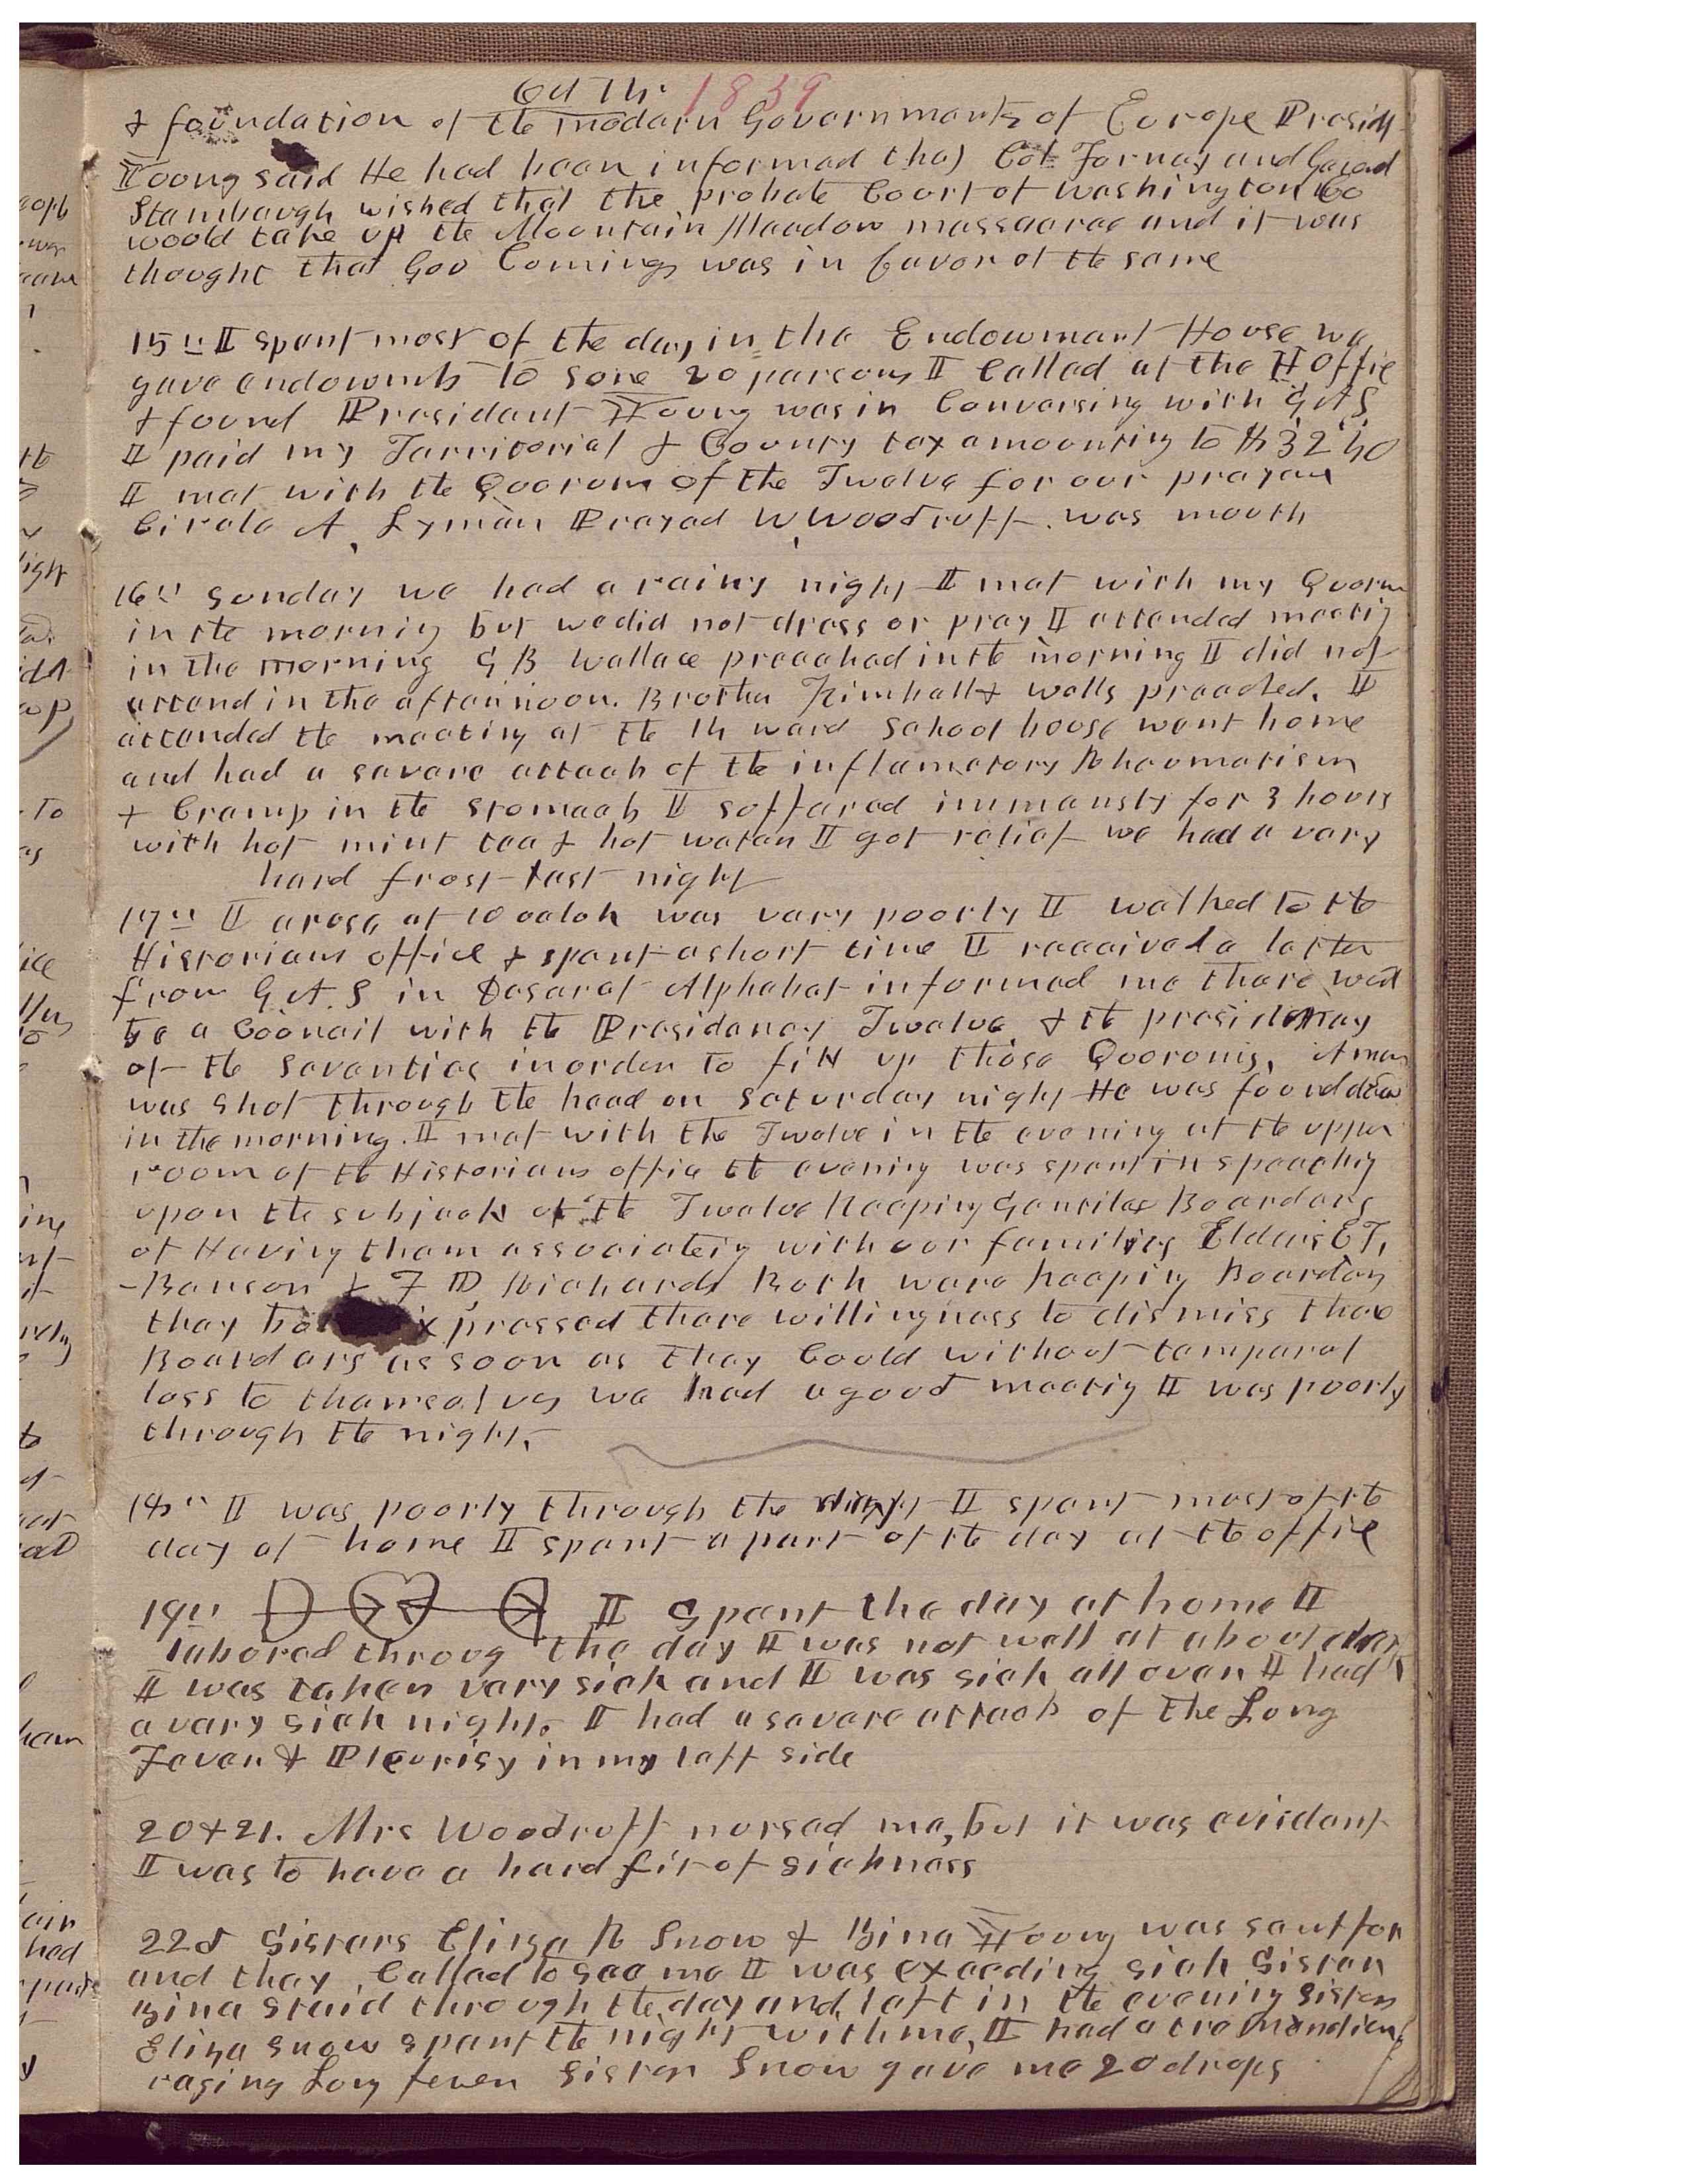 Oct 14. 1859
& foundation of the modern Governments of Europe Presidt
Young said He had been informed that Col Forney and Garad
Stambaugh wished that the probate Court of washington Co
would take up the Mountain Meadow massacree and it was
thought that Gov Comings was in favor of the same
15th I spent most of the day in the Endowment House we
gave endowmts to some 20 persons I Called at the H offic
& found President Young was in Conversing with G A S
I paid my Territorial & County tax amounting to $32 40
I met with the Quorum of the Twelve for our prayer
Circle A, Lyman Prayed W, Woodruff was mouth
16th Sunday we had a rainy night I met with my Quorm
in the morning but we did not dress or pray I attended meetig
in the morning G B Wallace preached in the morning I did not
attend in the afternnoon. Brother Kimball & wells preached. I
attended the meeting at the 14 ward School house went home
and had a severe attack of the inflametory Rheumatism
& Cramp in the stomach I suffered immensly for 3 hours
with hot mint tea & hot water I got relief we had a very
hard frost last night
17th I arose at 10 oclok was very poorly I walked to the
Historians office & spent a short time I received a letter
from G. A. S in Deseret Alphabet informed me there wold
be a Council with the Presidency Twelve & the presidency
of the Seventies in order to fill up those Quorums, A man
was shot through the head on Saturday night He was found dead
in the morning. I met with the Twelve in the evening at the upper
room of the Historians offic the evening was spent in speaking
upon the subject of the Twelve Keeping Gentiles Boarders
of Having them associateig with our families Elders E T,
-Benson & F D Richards Both were keeping Boarders
they bo expressed there willingness to dismiss there
Boarders as soon as they Could without temperal
loss to themselves we had a good meetig I was poorly
through the night,
18th I was poorly through the night I spent most of the
day at home I spent a part of the day at the offic
19th I Spent the day at home I
labored throug the day I was not well at about dark
I was taken very sick and I was sick all over I had
a very sick night. I had a severe attack of the Lung
Fever & Pleurisy in my left side
20 & 21. Mrs Woodruff nursed me, but it was evident
I was to have a hard fit of sickness
22d Sisters Eliza R Snow & Zina Young was sent for
and they Called to see me I was exceeding sick Sister
Zina staid through the day and left in the evening Sister
Eliza Snow spent the night with me, I had a tremendieus
raging Lung fever Sister Snow gave me 20 drops